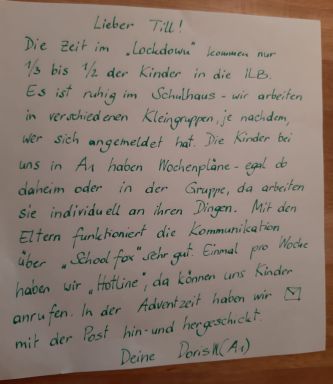 Lieber Till!
Die Zeit im „Lockdown" kommen nur
1/3 bis 1/2 der Kinder in die ILB.
Es ist ruhig im Schulhaus - wir arbeiten
in verschiedenen Kleingruppen, je nachdem,
wer sich angemeldet hat. Die Kinder bei
uns in A1 haben Wochenpläne - egal ob
daheim oder in der Gruppe, da arbeiten
sie individuell an ihren Dingen. Mit den
Eltern funktioniert die Kommunikation
über „Schoolfox" sehr gut. Einmal pro Woche
haben wir „Hotline", da können uns Kinder
anrufen. In der Adventzeit haben wir
mit der Post hin- und hergeschickt.
Deine Doris W (A1)